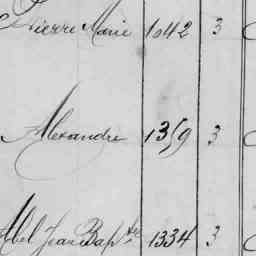 Pierre Marie 1042 3
Alexandre 1359 3
Abel Jean Bapte 1334 3